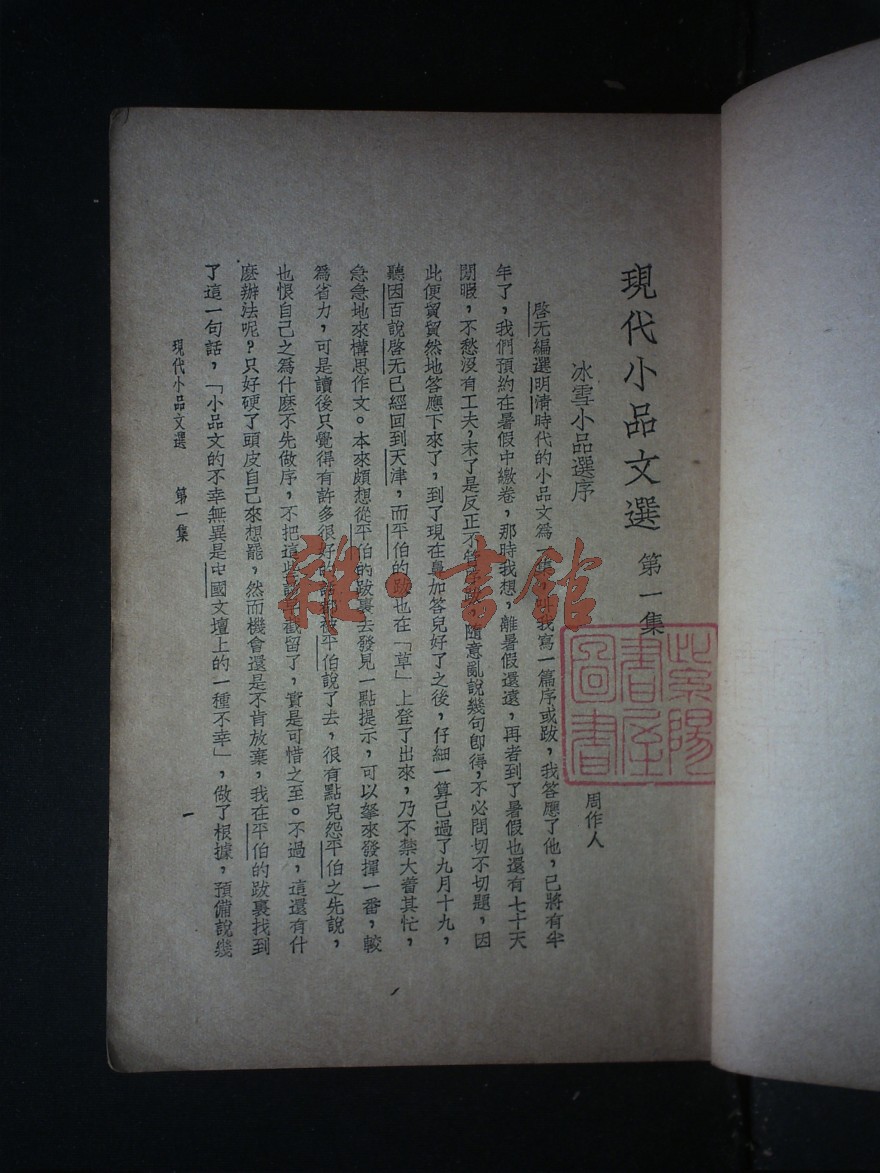 現代小品文選 第一集
冰雪小品選序
周作人
啓无編選明清時代的小品文爲一集,叫我寫一篇序或跋,我答應了他,已將有半
年了,我們預約在暑假中繳卷,那時我想,離暑假還遠,再者到了暑假也還有七十天
閒暇,不愁沒有工夫,末了是反正不管序跋,隨意亂說幾句卽得,不必問切不切題,因
此便貿貿然地答應下來了,到了現在鼻加答兒好了之後,仔細一算已過了九月十九,
聽因百說啓无已經回到天津,而平伯的跋也在「草」上登了出來,乃不禁大着其忙,
急急地來構思作文。本來頗想從平伯的跋裏去發見一點提示,可以拏來發揮一番,較
爲省力,可是讀後只覺得有許多很好的話都被平伯說了去,很有點兒怨平伯之先說,
也恨自己之爲什麽不先做序,不把這些話早截留了,實是可惜之至。不過,這還有什
麽辦法呢?只好硬了頭皮自己來想罷,然而機會還是不肯放棄,我在平伯的跋裏找到
了這一句話,「小品文的不幸無異是中國文壇上的一種不幸」,做了根據,預備說幾
現代小品文選 第一集
一
雜·書館
圖書